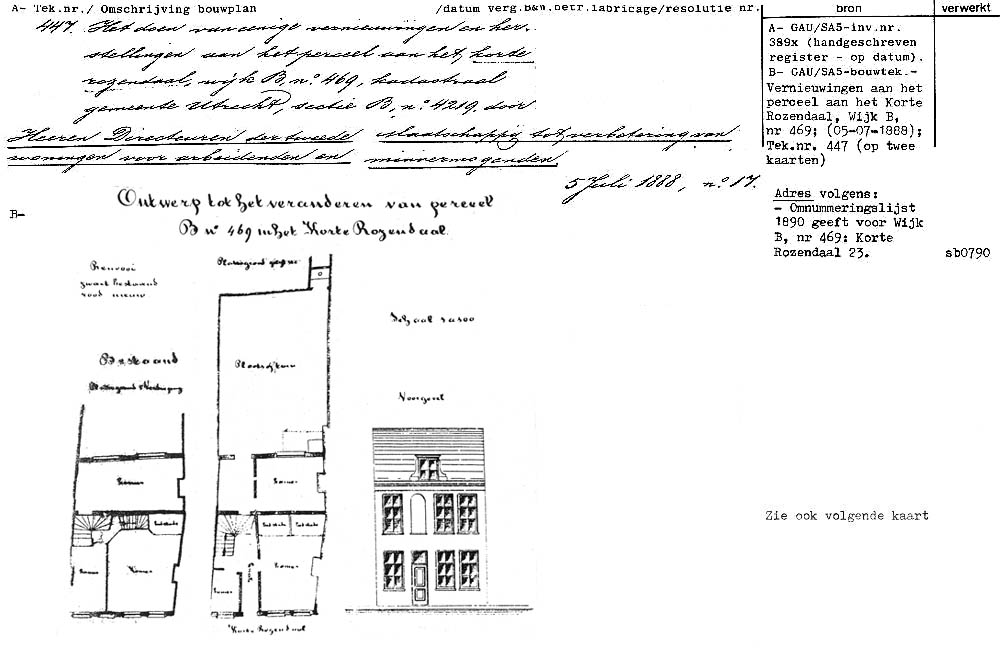 A- Tek.nr./ Omschrijving bouwplan /datum verg.B&W.betr.fabricage/resolutie nr. bron verwerkt
447. Het doen van eenige vernieuwingen en her-
stellingen aan het perceel aan het, korte
rozendaal, wijk B, n.o 469, kadastraal
gemeente Utrecht, sectie B, n.o 4219, door
Heeren Directeuren der tweede Maatschappij tot verbetering van
woningen voor arbeidenden en minvermogenden,
5 Juli 1888, n.o 17.
A- GAU/SA5-inv.nr.
389x (handgeschreven
register - op datum).
B- GAU/SA5-bouwtek.-
Vernieuwingen aan het
perceel aan het Korte
Rozendaal, Wijk B,
nr 469; (05-07-1888);
Tek.nr. 447 (op twee
kaarten)
Adres volgens:
- Omnummeringslijst
1890 geeft voor Wijk
B, nr 469: Korte
Rozendaal 23. sb0790
B-
Ontwerp tot het veranderen van perceel
B no 469 in het Korte Rozendaal.
Renvooi
zwart bestaand
rood nieuw
Bestaand
Plattegrond Verdieping
Kamer
Bedstede
Kamer
Plaatsje/tuin
Kamer
Bedstede Bedstede
Kamer
Gang
Kamer
Korte Rozendaal
Schaal 1 a 100
Voorgevel
Zie ook volgende kaart